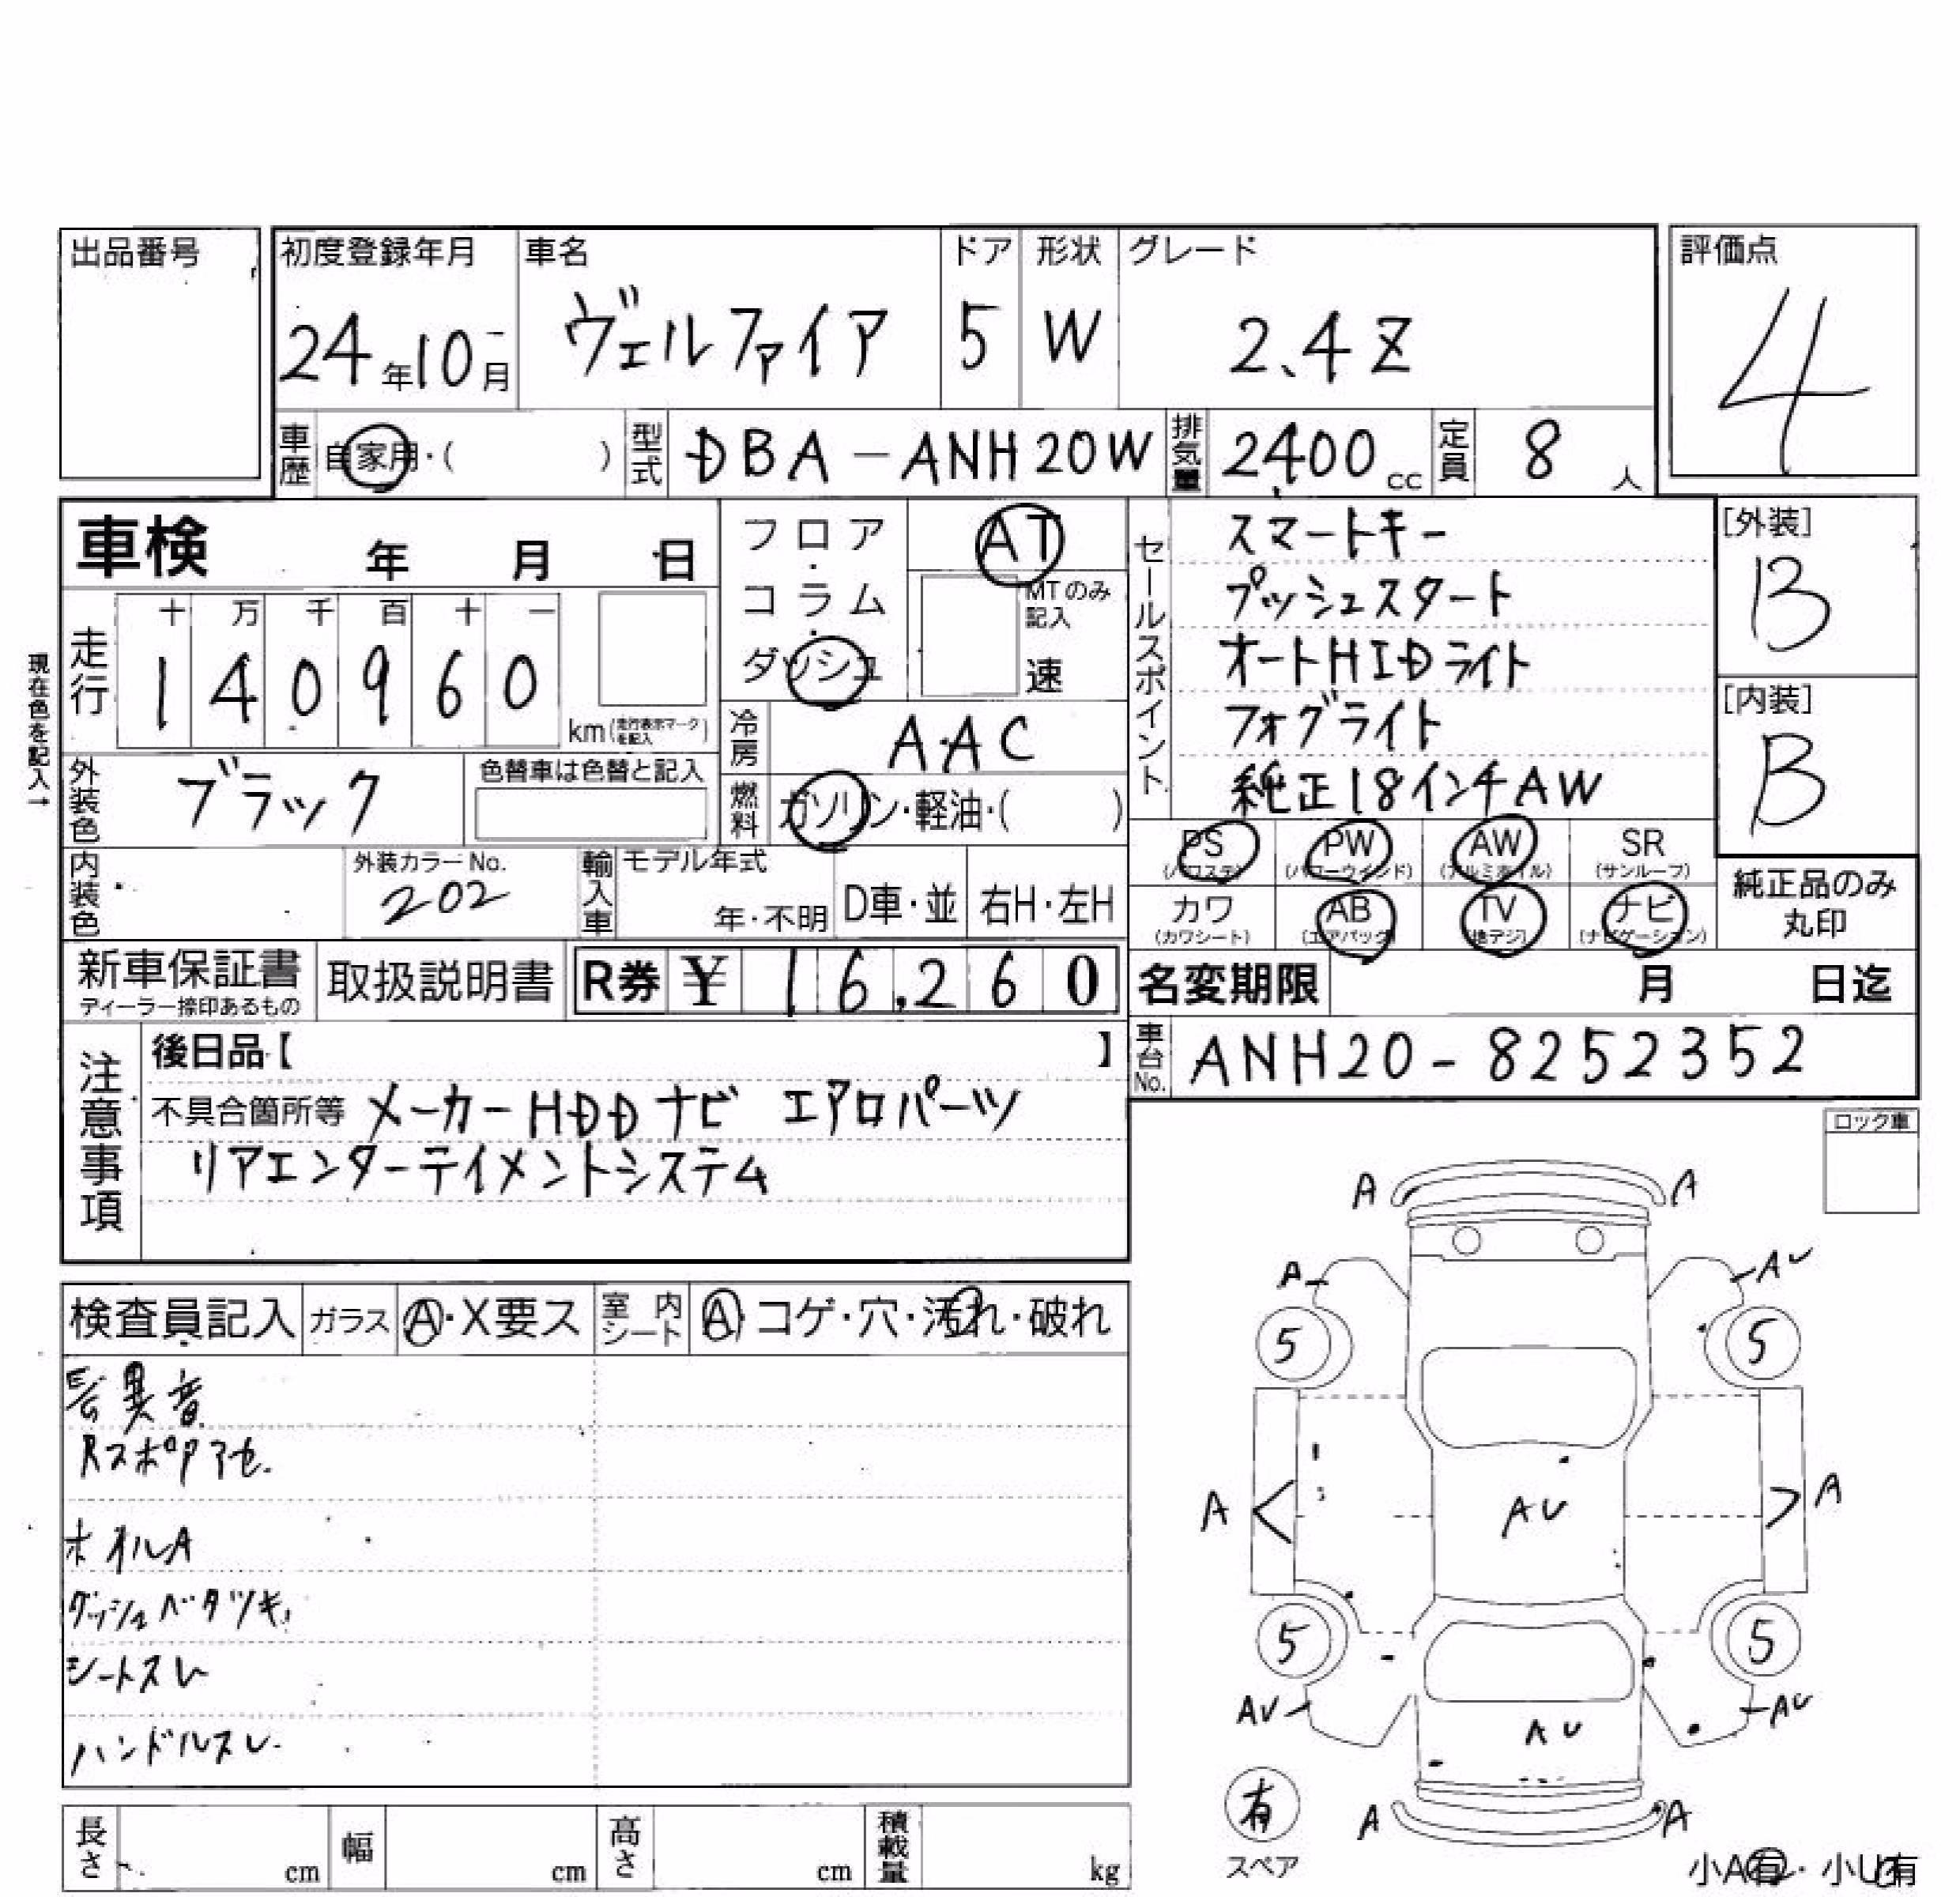 出品番号
初度登録年月 車名 ドア 形状 グレード 評価点
24年10月 ヴェルファイア 5 W 2.4Z 4
車歴 自家用・( ) 型式 DBA-ANH20W 排気量 2400cc 定員 8人
車検 年 月 日
フロア・コラム・ダッシュ AT
MTのみ記入 速
セールスポイント
スマートキー
プッシュスタート
オートHIDライト
フォグライト
純正18インチAW
[外装] B
[内装] B
現在色を記入→
走行 十 万 千 百 十 一
140960 km(走行表示マークを記入)
冷房 AAC
外装色 ブラック 色替車は色替と記入
燃料 ガソリン・軽油・( )
内装色 外装カラーNo. 202
輸入車 モデル年式 年・不明 D車・並 右H・左H
PS (パワステ) PW (パワーウインド) AW (アルミホイル) SR (サンルーフ)
カワ (カワシート) AB (エアバッグ) TV (地デジ) ナビ (ナビゲーション)
純正品のみ丸印
新車保証書 ディーラー捺印あるもの 取扱説明書 R券 ¥16,260
名変期限 月 日迄
車台No. ANH20-8252352
注意事項
後日品【 】
不具合箇所等 メーカーHDDナビ エアロパーツ
リアエンターテイメントシステム
ロック車
検査員記入 ガラス A・X要ス 室内シート A コゲ・穴・汚れ・破れ
異音
Rスポ
ホイルA
ダッシュベタツキ
シートスレ
ハンドルスレ
A A
A AU
5 5
A AU A
5 5
AU AU
AU
A A
有
スペア
小A有・小U有
長さ cm 幅 cm 高さ cm 積載量 kg